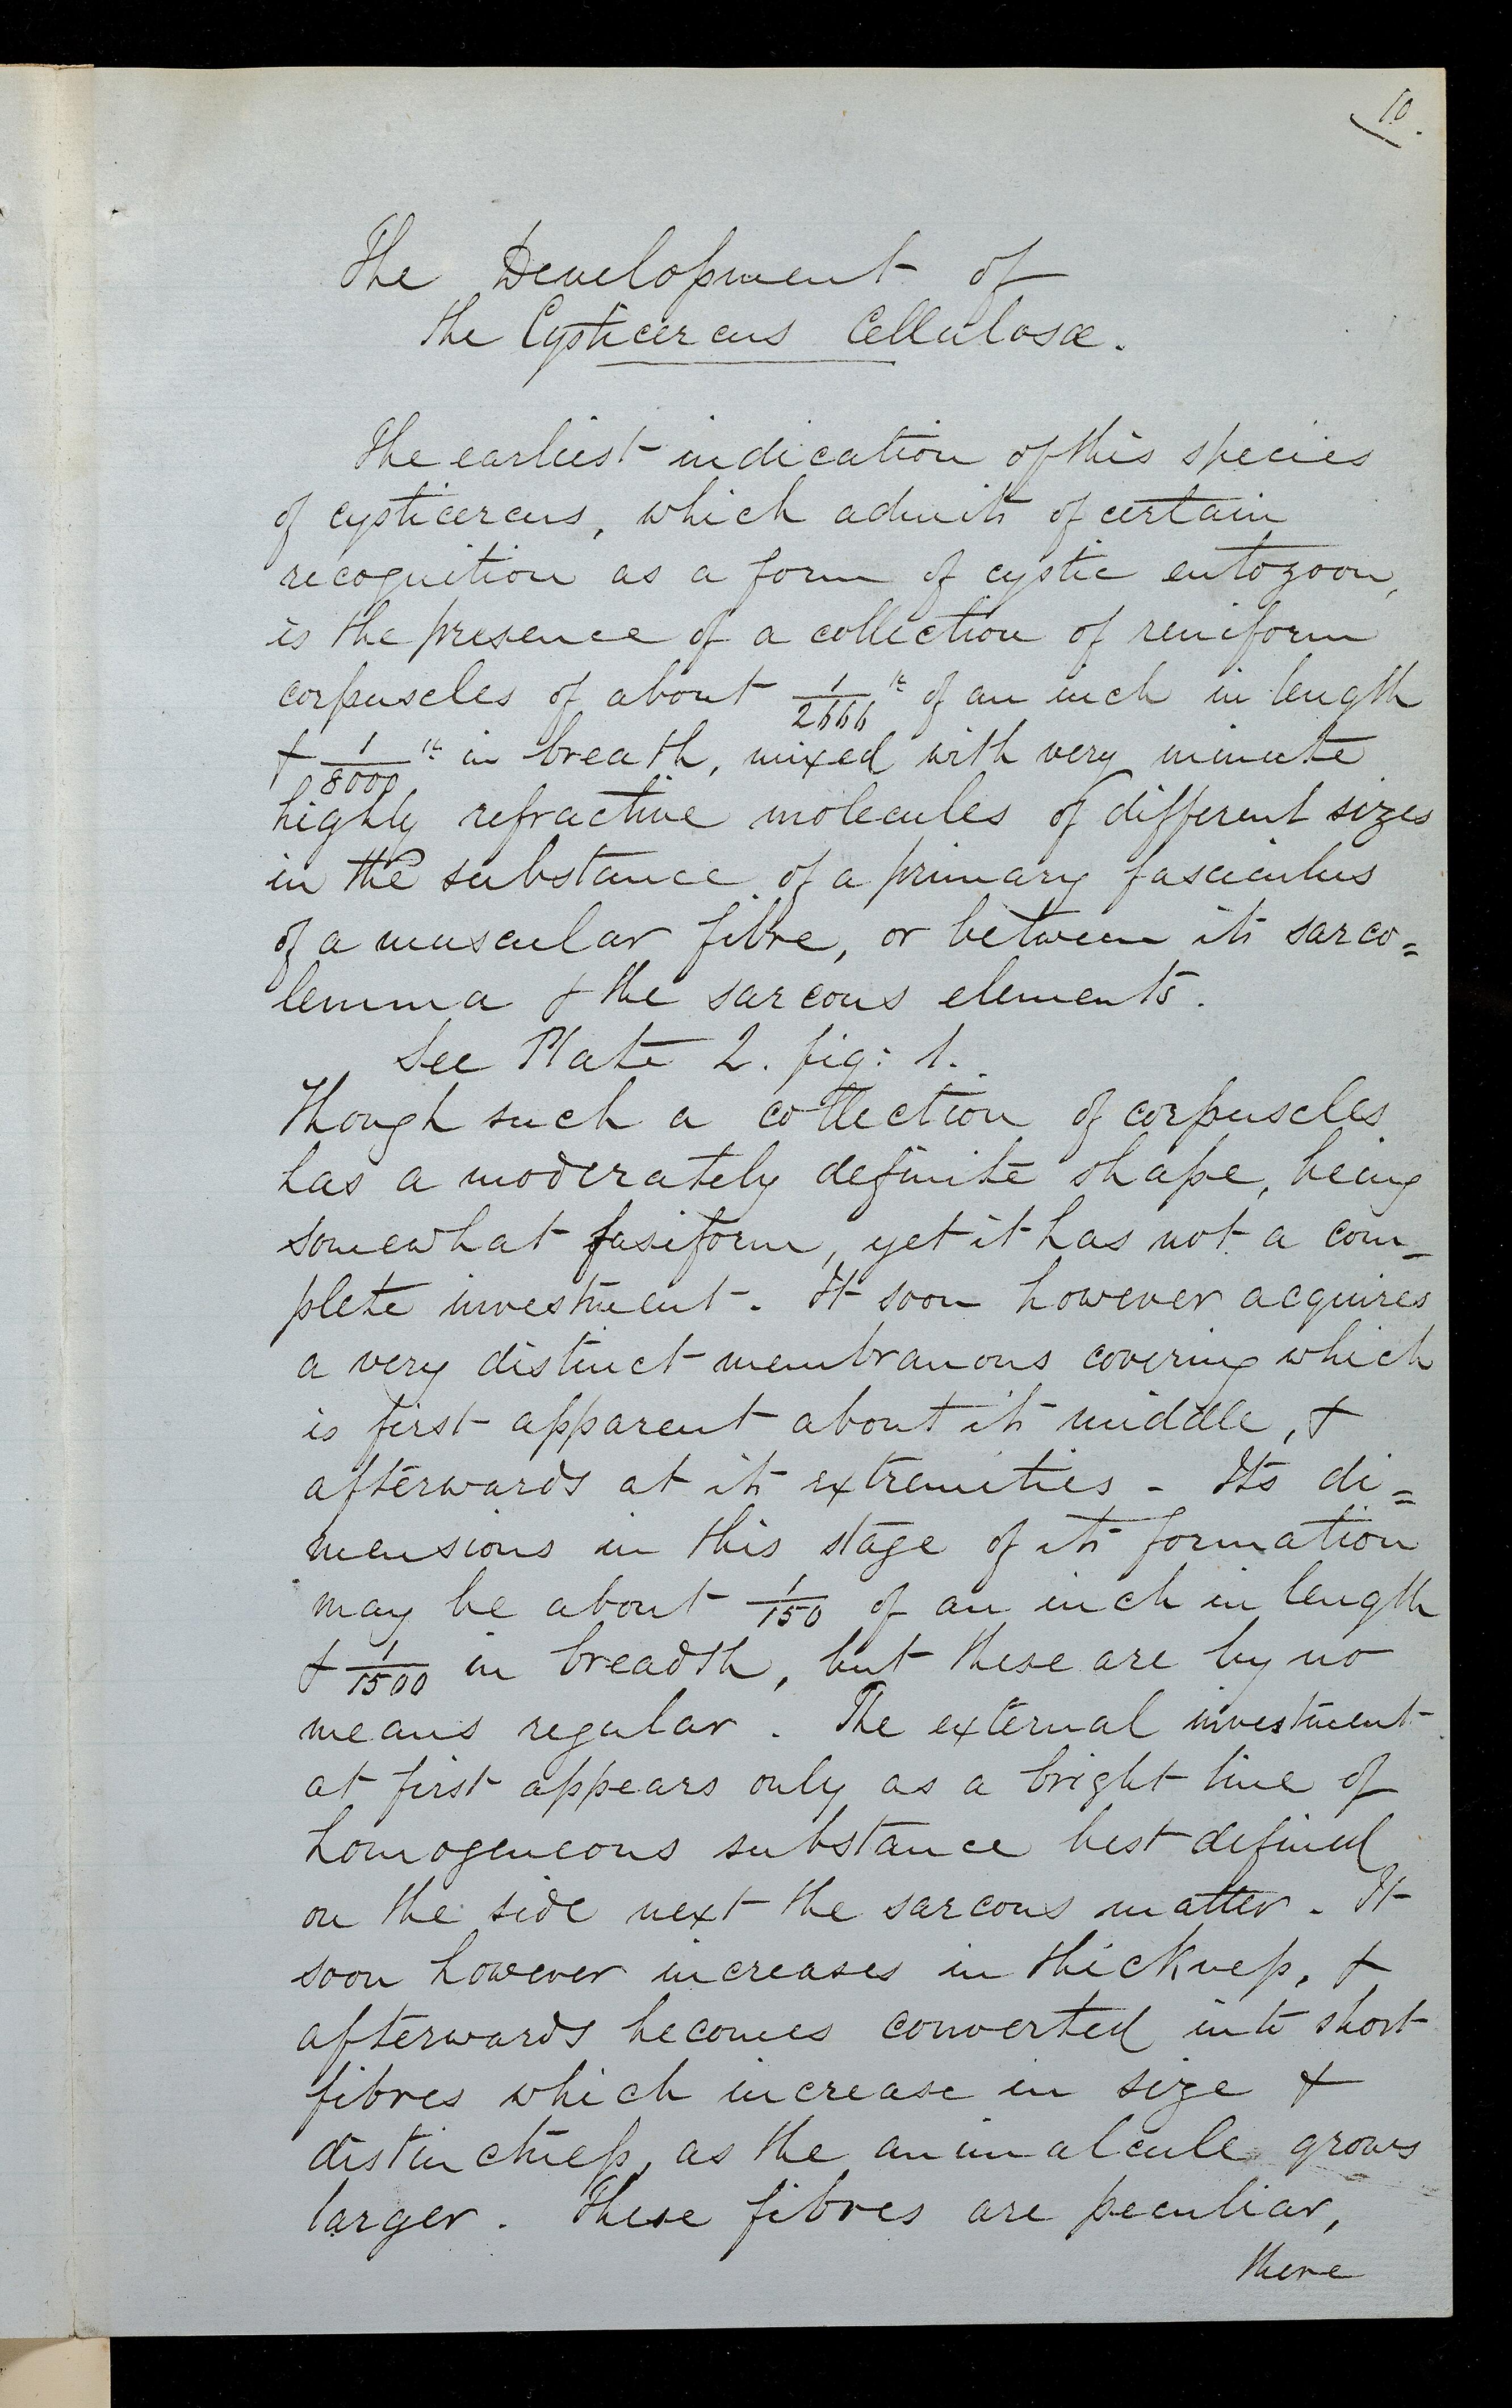 10.
The Development of
the Cysticercus Cellulosæ.
The earliest indication of this species
of cysticercus, which admits of certain
recognition as a form of cystic entozoon,
is the presence of a collection of reniform
corpuscles of about 1/2666th of an inch in length
& 1/8000th in breath, mixed with very minute
highly refractive molecules of different sizes
in the substance of a primary fasciculus
of a muscular fibre, or between its sarco=
lemma & the sarcous elements.
See Plate 2. fig: 1.
Though such a collection of corpuscles
has a moderately definite shape, being
somewhat fusiform, yet it has not a com-
plete investment. It soon however acquires
a very distinct membranous covering which
is first apparent about its middle, &
afterwards at its extremities - Its di=
mensions in this stage of its formation
may be about 1/150 of an inch in length
& 1/1500 in breadth, but these are by no
means regular. The external investment
at first appears only as a bright line of
homogeneous substance best defined
on the side next the sarcous matter. It
soon however increases in thickness, &
afterwards becomes converted into short
fibres which increase in size &
distinctness, as the animalcule grows
larger. These fibres are peculiar,
there